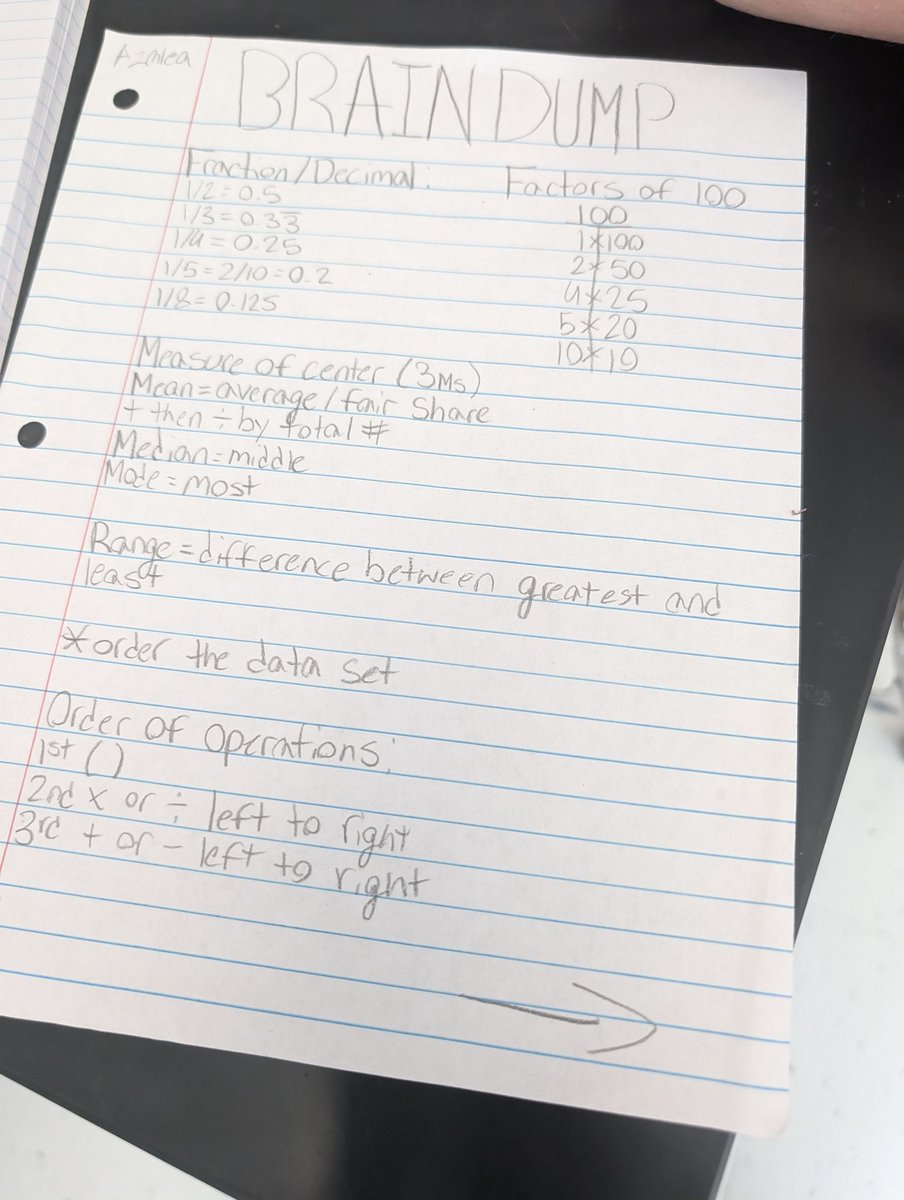 Azalea
BRAIN DUMP
Fraction/Decimal:
1/2=0.5
1/3=0.33
1/4=0.25
1/5=2/10=0.2
1/8=0.125
Factors of 100
100
1*100
2*50
4*25
5*20
10*10
Measure of center (3Ms)
Mean=average/fair Share
+ then ÷ by total #
Median=middle
Mode=most
Range=difference between greatest and
least
*order the data set
Order of Operations:
1st ()
2nd x or ÷ left to right
3rd + or - left to right